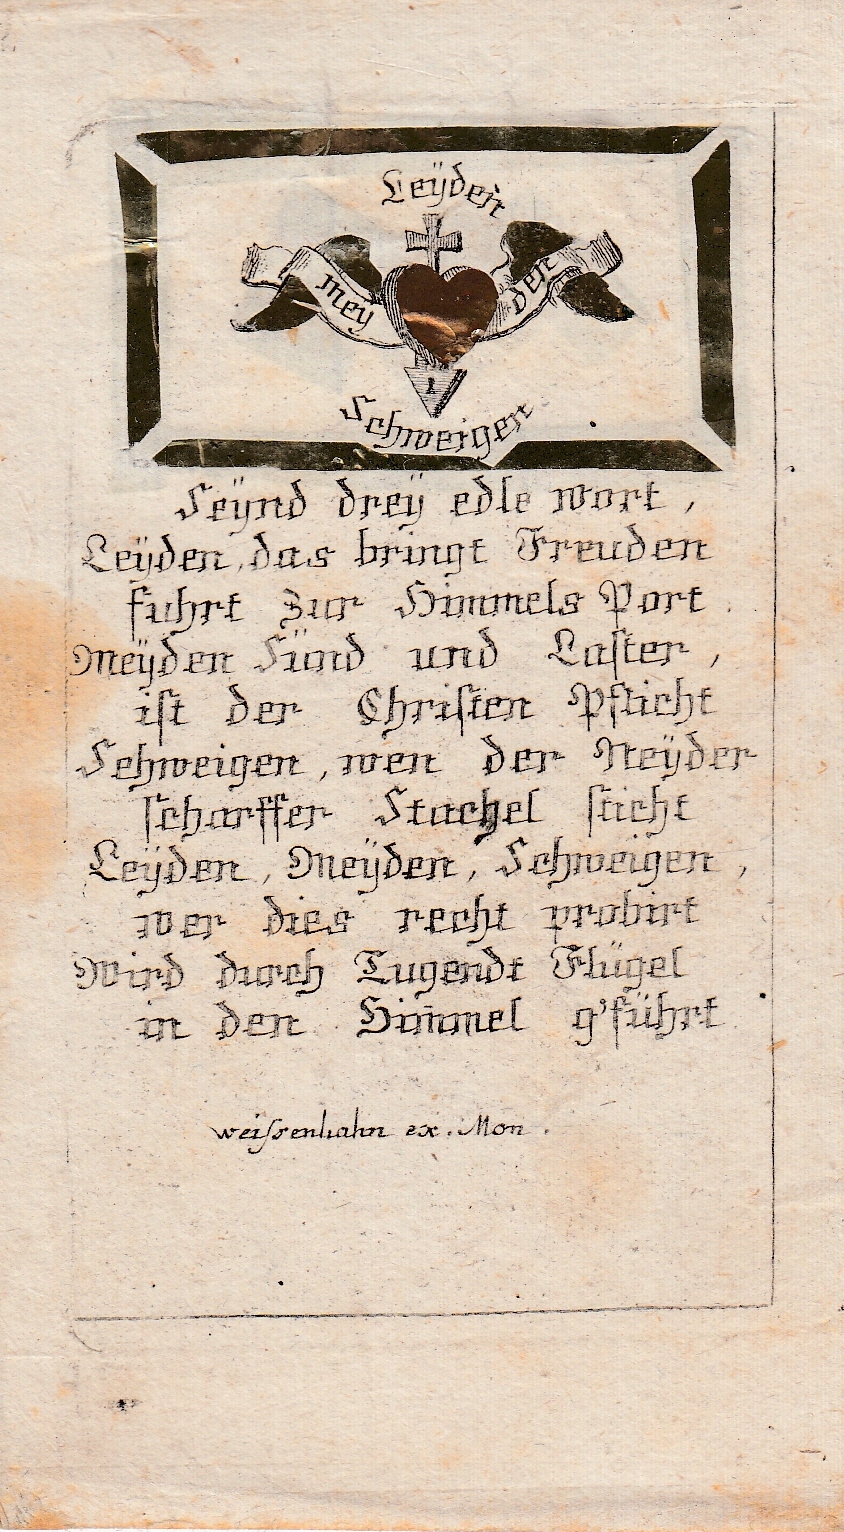 Leÿden
mey den
Schweigen
Seÿnd dreÿ edle wort,
Leÿden, das bringt Freuden
fuhrt zur Himmels Port.
Meÿden Sünd und Laster,
ist der Christen Pflicht
Schweigen, wen der Neÿder
scharffer Stachel sticht
Leÿden, Meÿden, Schweigen,
wer dies recht probirt
Wird durch Tugendt Flügel
in den Him̄mel g'führt
weissenhahn ex. Mon.